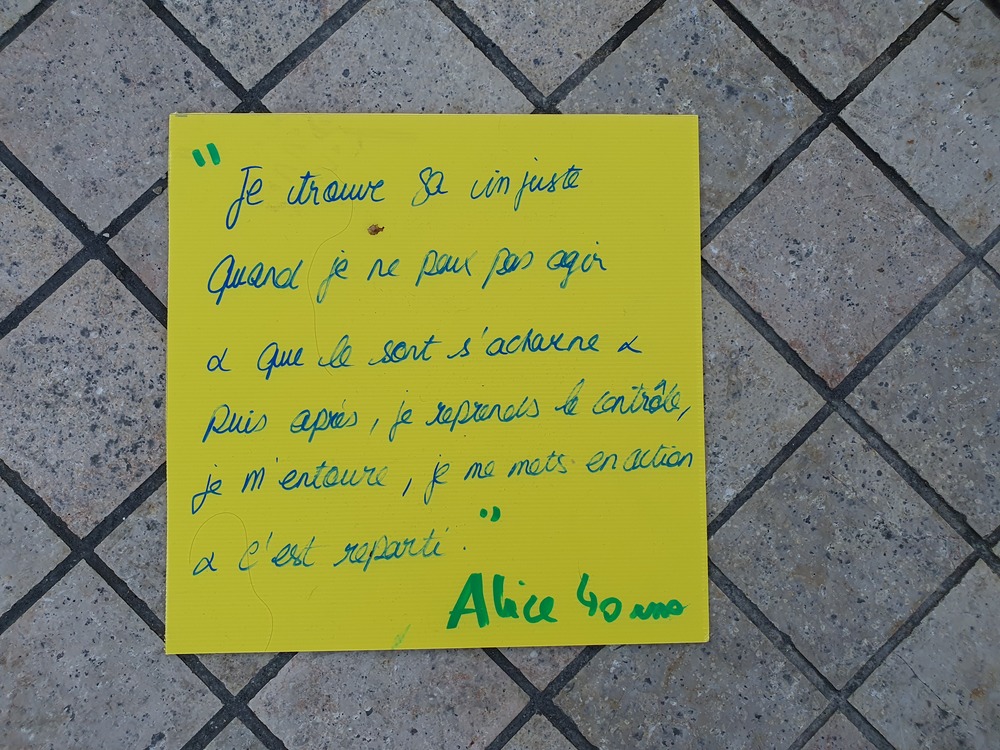 " Je trouve sa injuste
Quand je ne peux pas agir
& que le sort s'acharne &
puis après, je reprends le contrôle,
je m'entoure, je me mets en action
& c'est reparti. "
Alice 40 ans